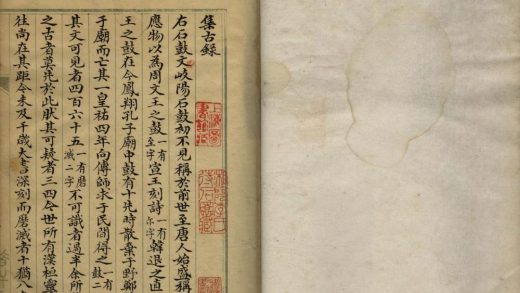 集古錄
右石鼓文岐陽石鼓初不見稱於前世至唐人始盛稱
應物以為周文王之鼓一有至字宣王刻詩一有尔字韓退之直
王之鼓在今鳳翔孔子廟中鼓有十先時散棄于野鄭
于廟而亡其一皇祐四年向傳師求于民間得之一有鼓二
其文可見者四百六十五一有磨滅二字不可識者過半余所
之古者莫先於此然其可疑者三四今世所有漢桓靈
往尚在其距今未及千歲大書深刻而磨滅者十猶八